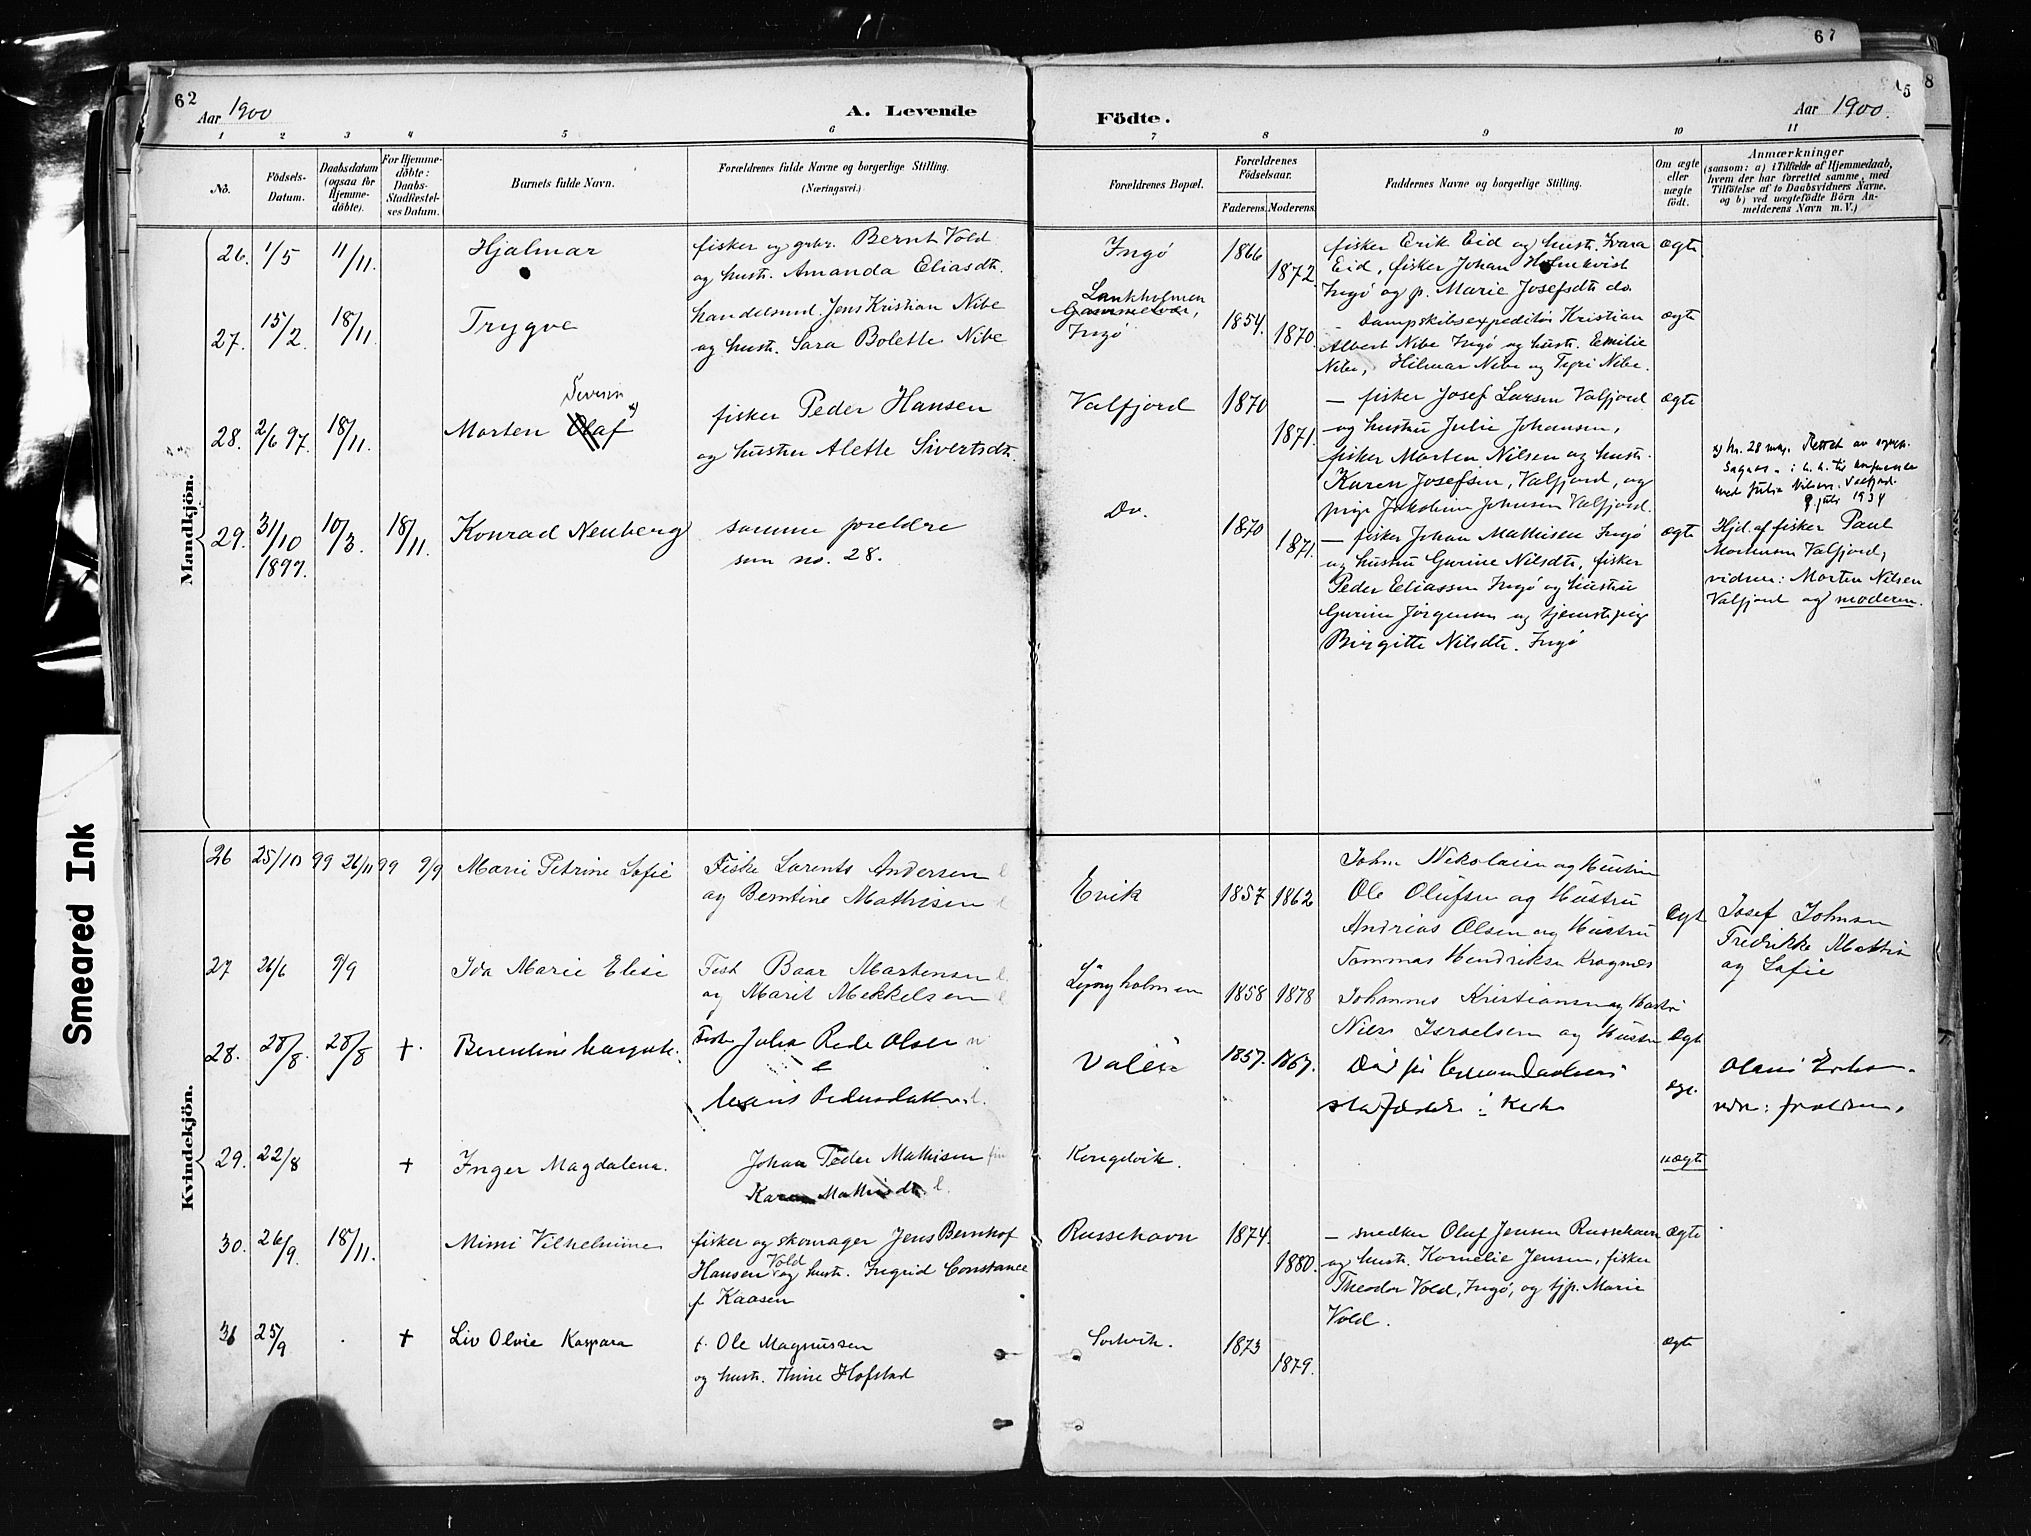 67
62
Aar 1900
A. Levende
Födte.
Aar 1900.
5
8
1 2 3 4 5 6 7 8 9 10 11
No.
Födsels-
Datum.
Daabsdatum
(ogsaa for
Hjemme-
döbte).
For Hjemme-
döbte:
Daabs-
Stadfæstel-
ses Datum.
Barnets fulde Navn.
Forældrenes fulde Navne og borgerlige Stilling.
(Næringsvei.)
Forældrenes Bopæl.
Forældrenes
Födselsaar.
Faderens. Moderens.
Faddernes Navne og borgerlige Stilling.
Om ægte
eller
uægte
födt.
Anmærkninger
(saasom: a) i Tilfælde af Hjemmedaab,
hvem der har forrettet samme, med
Tilföielse af to Daabsvidners Navne,
og b) ved uægtefödte Börn An-
melderens Navn m. V.)
Mandkjön.
26. 1/5 11/11. Hjalmar
fisker og gbr. Bernt Vold
og hustr. Amanda Eliasdt.
Ingø 1866 1872
fisker Erik Eid og hustr. Ivara
Eid, fisker Johan Holmkvist
Ingø og p. Marie Josefsdt do.
ægte
27. 15/2. 18/11. Trygve
handelsmd. Jens Kristian Nibe
og hustr. Sara Bolette Nibe
Lankholmen
Gammelvær,
Ingø
1854. 1870.
– Dampskibsexpeditør Kristian
Albert Nibe Ingø og hustr. Emilie
Nibe, Hilmar Nibe og Tygri Nibe.
ægte
28. 2/6 97. 18/11.
Severin
Morten Olaf x)
fisker Peder Hansen
og hustru Alette Sivertsdt.
Valfjord 1870 1871.
– fisker Josef Larsen Valfjord
og hustru Julie Johansen,
fisker Morten Nilsen og hustr.
Karen Josefsen, Valfjord, og
pige Jakobine Johnsen Valfjord.
ægte
x) Nr. 28 Rettet av
med Julia Nilsen. Valfjord.
9 juli 1934
29. 31/10 1897. 10/3. 18/11. Konrad Neuberg
samme foreldre
som no. 28.
Do. 1870 1871.
– fisker Johan Mathisen Ingø
og hustru Gurine Nilsdt, fisker
Peder Eliassen Ingø og hustru
Gurine Jørgensen og tjenstepige
Birgitte Nilsdt. Ingø
ægte
Hjd. af fisker Paul
Mortensen Valfjord,
vidner: Morten Nilsen
Valfjord og moderen.
Kvindekjön.
26 25/10 99 26/11 99 9/9 Marie Petrine Sofie
Fiske Lorents Andersen
og Berntine Mathisen
Evik 1857 1862
John Nikolaisen og Hustru
Ole Olufsen og Hustru
Andrias Olsen og Hustru
Tommas Hendriksen Kragnes
Ægt
Josef Johnsen
Fredrikke Mathis
og Sofie
27 26/6 9/9 Ida Marie Elise
Fisk Baar Mortensen
og Marit Mekkelsen
Ljøngholmen 1858 1878
Johannes Kristiansen og Hustru
Niels Israelsen og Hustru
Ægt
28. 28/8. 28/8 + Berentine
Fisk Johan Peder Olsen
&
Pedersdatter.
1857. 1867.
ægt.
Olaus
29. 22/8 + Inger Magdalena.
Johan Peder Mathisen
Karen Mathisdt.
Kongsvik.
uægte
30. 26/9. 18/11. Mimi Vilhelmine
fisker og skomager Jens Bernhof
Hansen Vold og hustr. Ingrid Constance
f. Kaasen
Russehavn 1874. 1880.
– snedker Oluf Jensen Russehavn
og hustr. Kornelie Jensen, fisker
Theodor Vold, Ingø, og tjp. Marie
Vold.
ægte
31 25/9 . + Liv Olvie Kaspara
f. Ole Magnussen
og hustr. Thine Hofstad
Sortvik. 1873 1879.
ægte
Smeared Ink